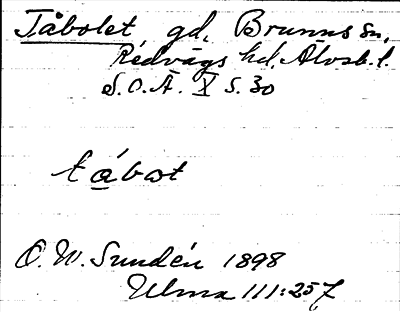 Tåbolet, gd, Brunns sn,
Redvägs hd, Älvsb. l.
S.O.Ä. X S. 30
tábot
O. W. Sundén 1898
Ulma 111:257